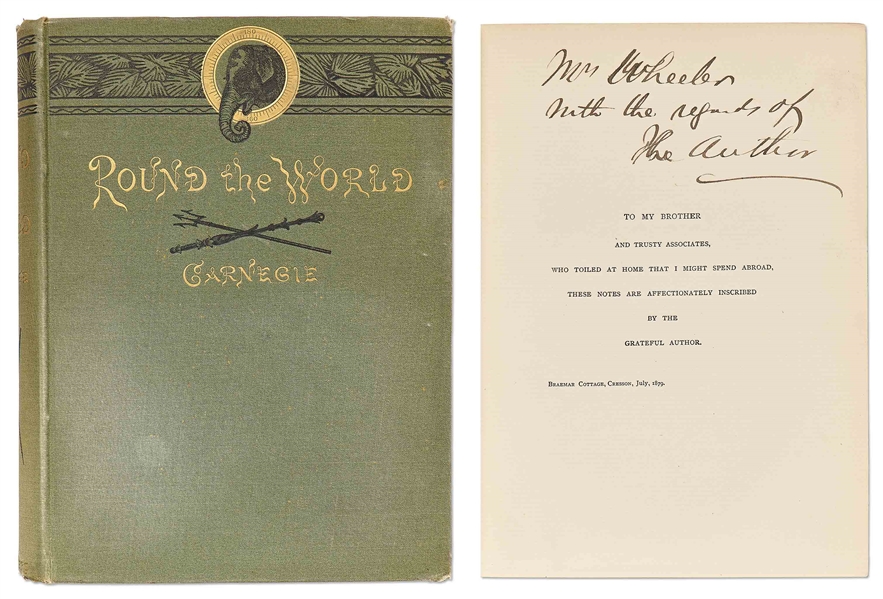 ROUND the WORLD
CARNEGIE
Mrs Wheeler
With the regards of
The Author
TO MY BROTHER
AND TRUSTY ASSOCIATES,
WHO TOILED AT HOME THAT I MIGHT SPEND ABROAD,
THESE NOTES ARE AFFECTIONATELY INSCRIBED
BY THE
GRATEFUL AUTHOR.
BRAEMAR COTTAGE, CRESSON, July, 1879.